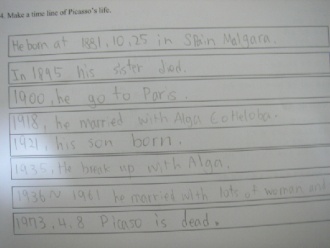 4. Make a time line of Picasso's life.
He born at 1881, 10, 25 in SPain Malgara.
In 1895 his sister died.
1900, he go to Paris.
1918, he married with Alga
1921, his son born.
1935, He break up with Alga.
1936~ 1961 he married with lots of woman and
1973, 4, 8 Picaso is dead.